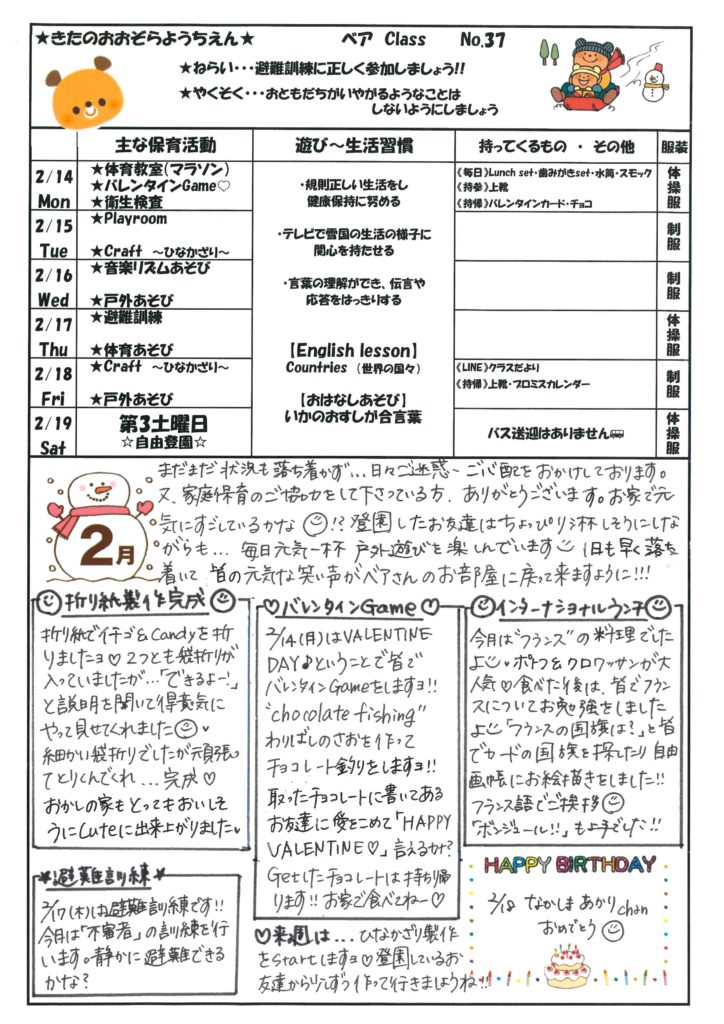 ★きたのおおぞらようちえん★ ベア Class No.37
★ねらい・・・避難訓練に正しく参加しましょう!!
★やくそく・・・おともだちがいやがるようなことは
しないようにしましょう
主な保育活動 遊び~生活習慣 持ってくるもの ・ その他 服装
2/14 Mon
★体育教室(マラソン)
★バレンタインGame♡
★衛生検査
・規則正しい生活をし
健康保持に努める
《毎日》Lunch set・歯みがきset・水筒・スモック
《持参》上靴
《持帰》バレンタインカード・チョコ
体操服
2/15 Tue
★Playroom
★Craft ~ひなかざり~
・テレビで雪国の生活の様子に
関心を持たせる
制服
2/16 Wed
★音楽リズムあそび
★戸外あそび
・言葉の理解ができ、伝言や
応答をはっきりする
制服
2/17 Thu
★避難訓練
★体育あそび
【English lesson】
Countries (世界の国々)
体操服
2/18 Fri
★Craft ~ひなかざり~
★戸外あそび
【おはなしあそび】
いかのおすしが合言葉
《LINE》クラスだより
《持帰》上靴・プロミスカレンダー
制服
2/19 Sat
第3土曜日
☆自由登園☆
バス送迎はありません
体操服
2月
まだまだ状況も落ち着かず…日々ご迷惑・ご心配をおかけしております。
又、家庭保育のご協力をして下さっている方、ありがとうございます。お家で元
気にすごしているかな!? 登園したお友達はちょぴり淋しそうにしな
がらも… 毎日元気一杯 戸外遊びを楽しんでいます 1日も早く落ち
着いて 皆の元気な笑い声がベアさんのお部屋に戻って来ますように!!!
折り紙製作完成
折り紙でイチゴ&Candyを折
りましたヨ♡2つとも袋折りが
入っていましたが…「できるよー!」
と説明を聞いて得意気に
やって見せてくれました
細かい袋折りでしたが頑張っ
てとりくんでくれ…完成♡
おかしの家もとってもおいしそ
うにCuteに出来上がりました♥
♡バレンタインGame♡
2/14(月)はVALENTINE
DAY♪ということで皆で
バレンタインGameをしますヨ!!
"chocolate fishing"
わりばしのさおを作って
チョコレート釣りをしますヨ!!
取ったチョコレートに書いてある
お友達に愛をこめて「HAPPY
VALENTINE♡」言えるかナ?
Getしたチョコレートは持ち帰
ります!! お家で食べてねー♡
インターナショナルランチ
今月は"フランス"の料理でした
よ♥ポトフ&クロワッサンが大
人気♡食べた後は、皆でフラン
スについてお勉強をしました
よ「フランスの国旗は?」と皆
でカードの国旗を探したり自由
画帳にお絵描きをしました!!
フランス語でご挨拶
「ボンジュール!!」も上手でした!!
★避難訓練★
2/17(木)は避難訓練です!!
今月は「不審者」の訓練を行
います。静かに避難できる
かな?
♡来週は…ひなかざり製作
をstartしますヨ♡登園しているお
友達から少しずつ作って行きましょうね!!
HAPPY BIRTHDAY
2/18 なかしま あかりchan
おめでとう